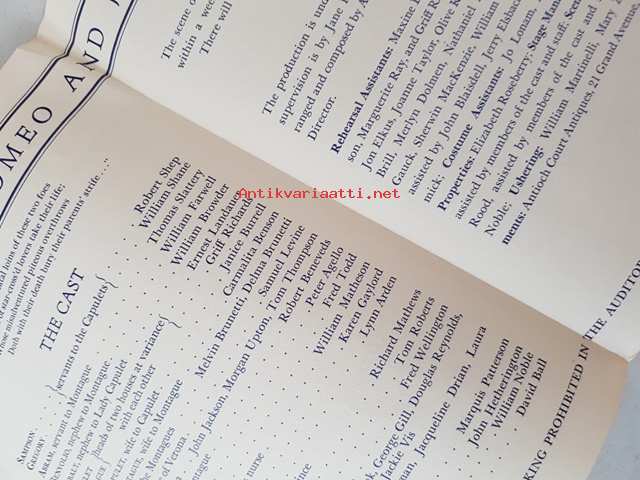 OMEO AND
atal loins of these two foes
of star-cross'd lovers take their life;
Whose misadventured piteous overthrows
Doth with their death bury their parents' strife. . ."
THE CAST
SAMPSON
GREGORY
servants to the Capulets
ABRAM, servant to Montague
BENVOLIO, nephew to Montague
nephew to Lady Capulet
heads of two houses at variance
with each other
wife to Capulet
wife to Montague
the Montagues
of Verona
nurse
Robert Shep
William Shane
Thomas Slattery
William Farwell
William Browder
Ernest Landauer
Griff Richards
Janice Burrell
Carmalita Benson
Melvin Brunetti, Delma Brunetti
Samuel Levine
John Jackson, Morgan Upton, Tom Thompson
Robert Beneveds
Peter Agello
Fred Todd
William Matheson
Karen Gaylord
Lynn Arden
Richard Mathews
Tom Roberts
Fred Wellington
George Gill, Douglas Reynolds,
Jackie Vis
man, Jacqueline Drian, Laura
Marquis Patterson
John Hetherington
William Noble
David Ball
The scene o
within a wee
There will
The production is und
supervision is by Jane
ranged and composed by A
Director.
Rehearsal Assistants: Maxine
son, Marguerite Ray, and Griff R
Jon Elkus, Joanne Taylor, Olive
Brill, Merlyn Dolmen, Nathaniel
Gauck, Sherwin MacKenzie, William
assisted by John Blaisdell, Jerry Eisbac
mick; Costume Assistants: Jo Lonam,
Properties: Elizabeth Roseberry; Stage Man
assisted by members of the cast and staff; Scen
Rood, assisted by members of the cast and
Noble; Ushering: William Martinelli, Mary
ments: Antioch Court Antiques, 21 Grand Avenue,
KING PROHIBITED IN THE AUDITOR
Antikvariaatti.net